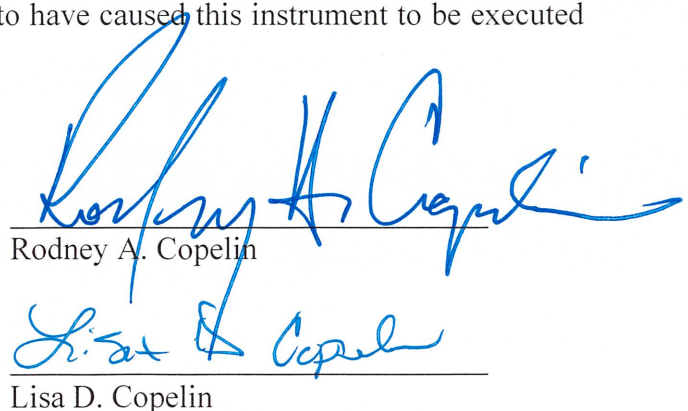 to have caused this instrument to be executed
Rodney A. Copelin
Rodney A. Copelin
Lisa D Copelin
Lisa D. Copelin